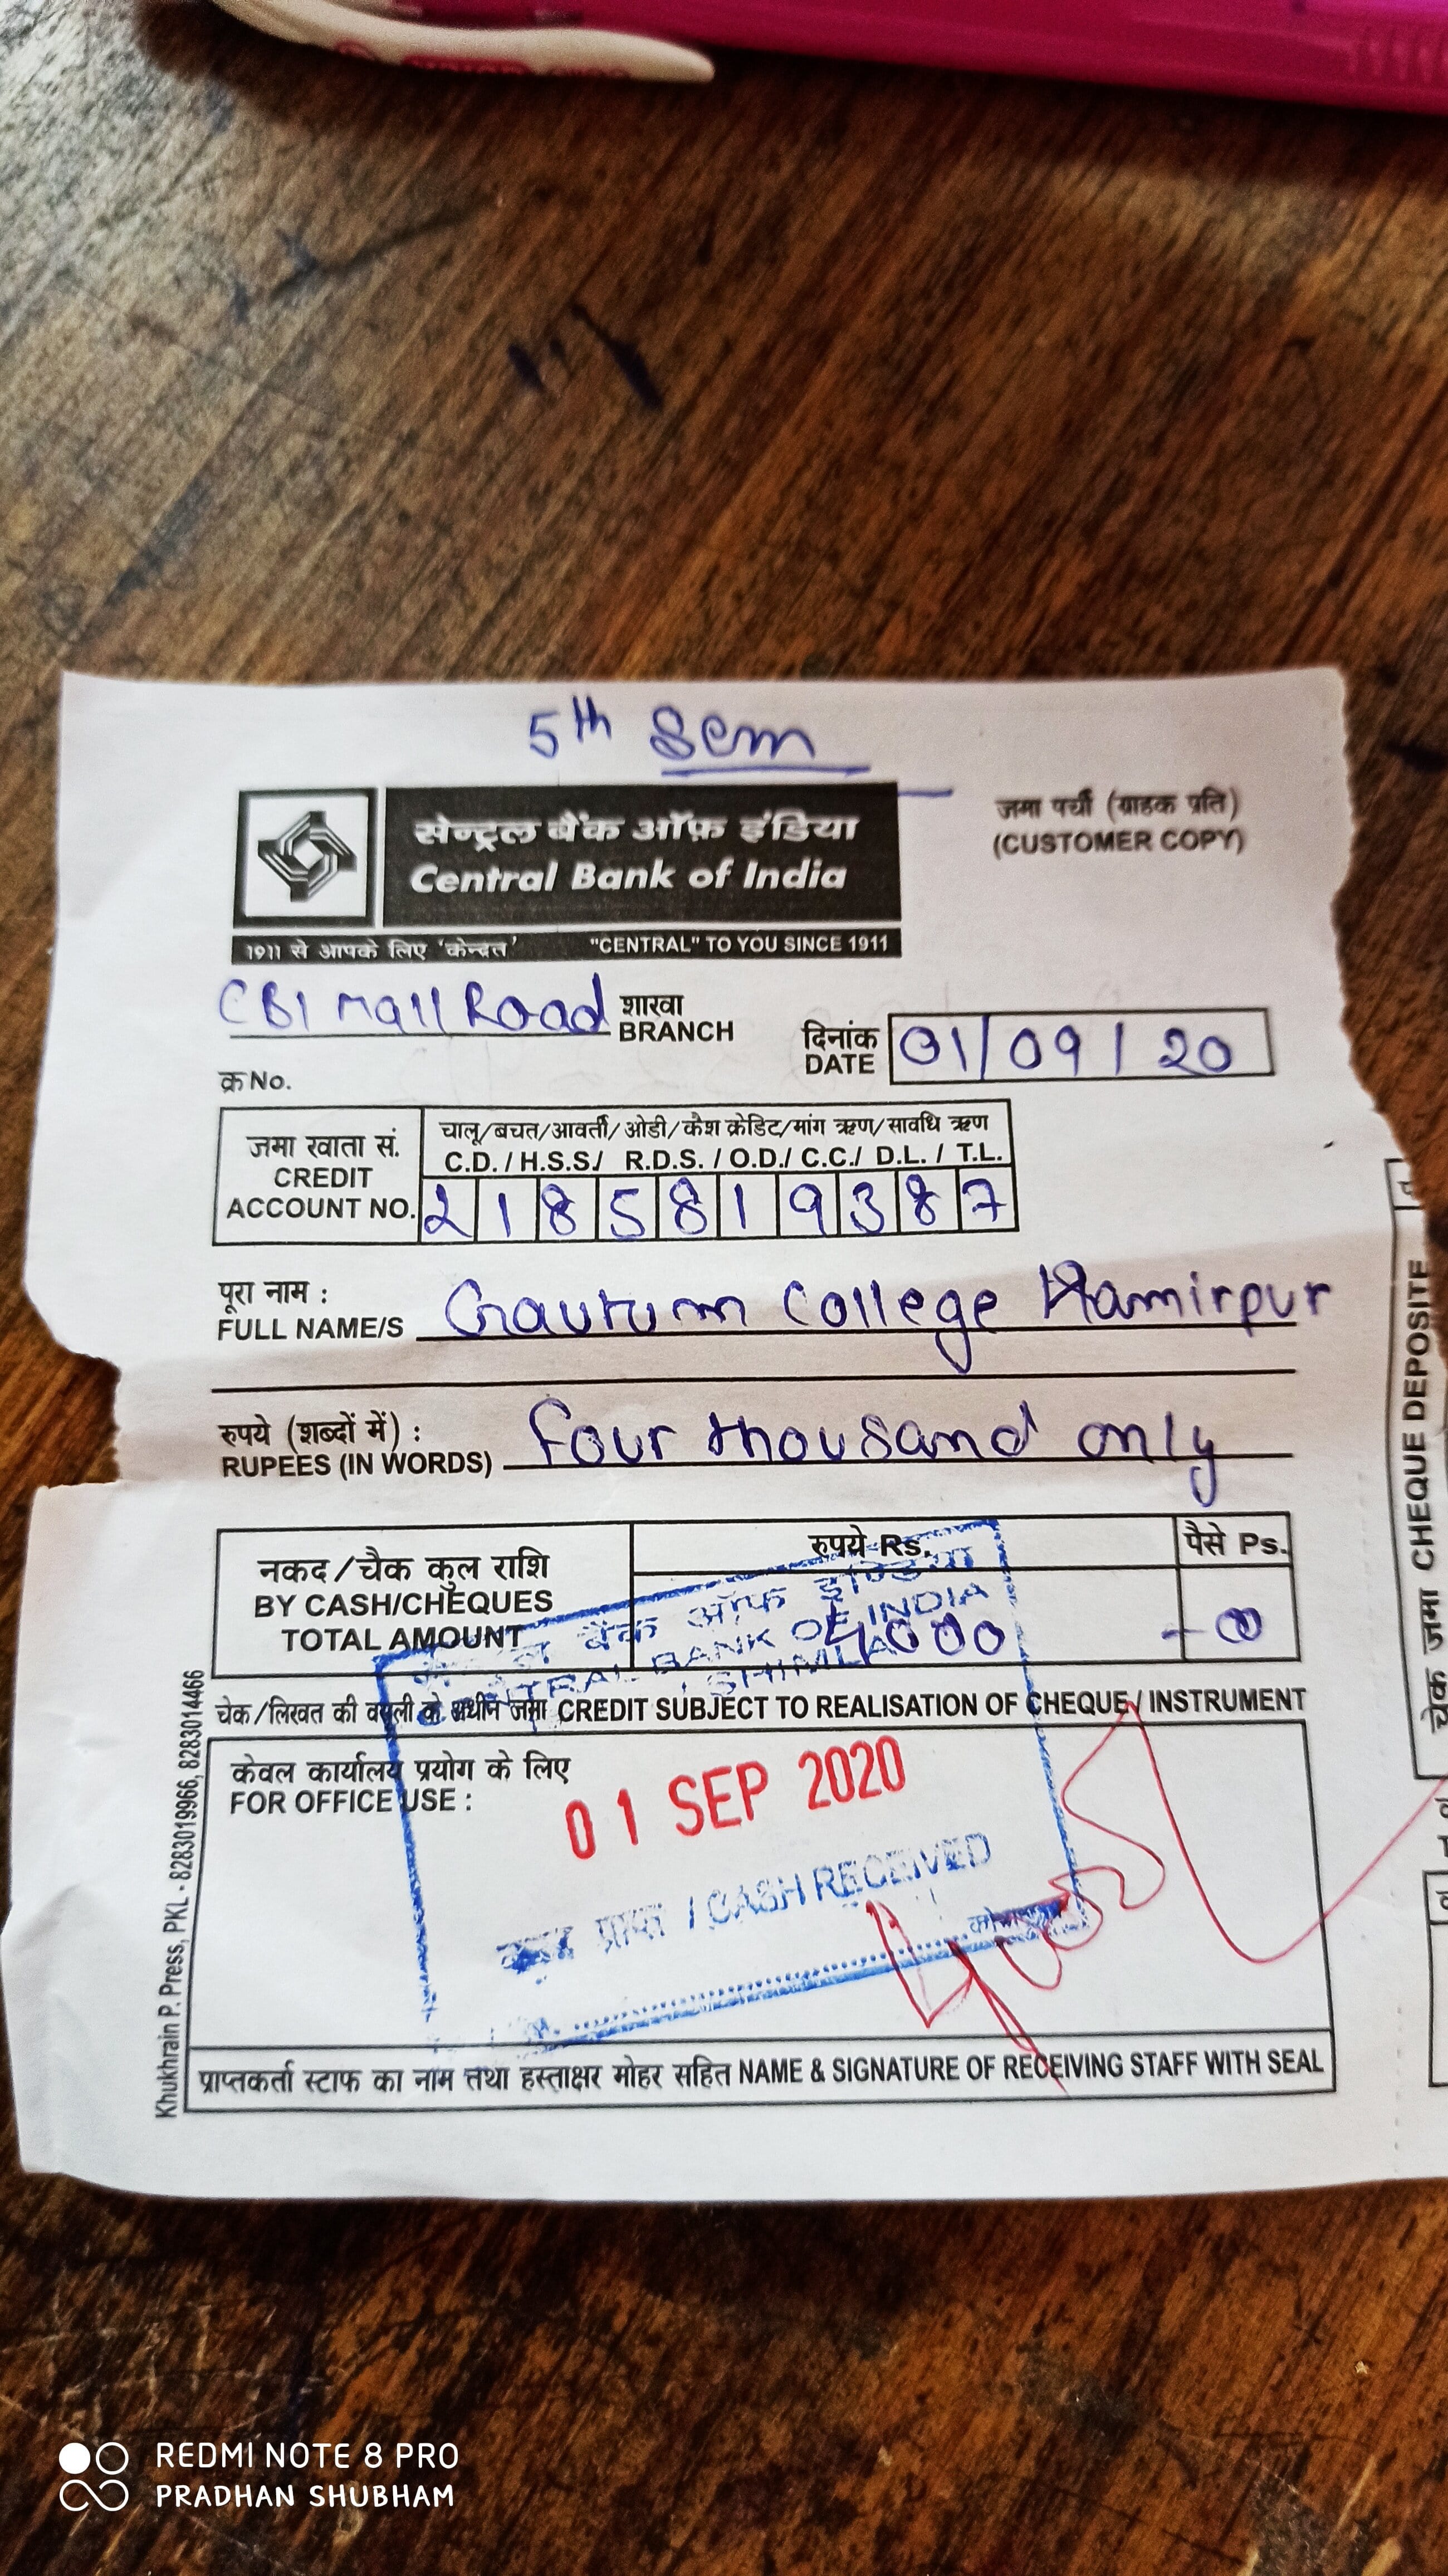 5th Sem
सेन्ट्रल बैंक ऑफ़ इंडिया
Central Bank of India
1911 से आपके लिए 'केन्द्रित' "CENTRAL" TO YOU SINCE 1911
जमा पर्ची (ग्राहक प्रति)
(CUSTOMER COPY)
CBI Mall Road शाखा
BRANCH
दिनांक
DATE 01/09/20
क्र No.
जमा खाता सं.
CREDIT
ACCOUNT NO.
चालू/बचत/आवर्ती/ओडी/कैश क्रेडिट/मांग ऋण/सावधि ऋण
C.D. / H.S.S./ R.D.S. / O.D./ C.C./ D.L. / T.L.
2185819387
पूरा नाम :
FULL NAME/S Gautum College Hamirpur
रुपये (शब्दों में) :
RUPEES (IN WORDS) four thousand only
नकद/चैक कुल राशि
BY CASH/CHEQUES
TOTAL AMOUNT
रुपये Rs. पैसे Ps.
4000 -00
बैंक ऑफ इण्डिया
BANK OF INDIA
SHIMLA
चेक/लिखत की वसूली के अधीन जमा CREDIT SUBJECT TO REALISATION OF CHEQUE / INSTRUMENT
केवल कार्यालय प्रयोग के लिए
FOR OFFICE USE :
01 SEP 2020
नकद प्राप्त / CASH RECEIVED
प्राप्तकर्ता स्टाफ का नाम तथा हस्ताक्षर मोहर सहित NAME & SIGNATURE OF RECEIVING STAFF WITH SEAL
Khukhrain P. Press, PKL - 8283019966, 8283014466
चेक जमा CHEQUE DEPOSITE
REDMI NOTE 8 PRO
PRADHAN SHUBHAM